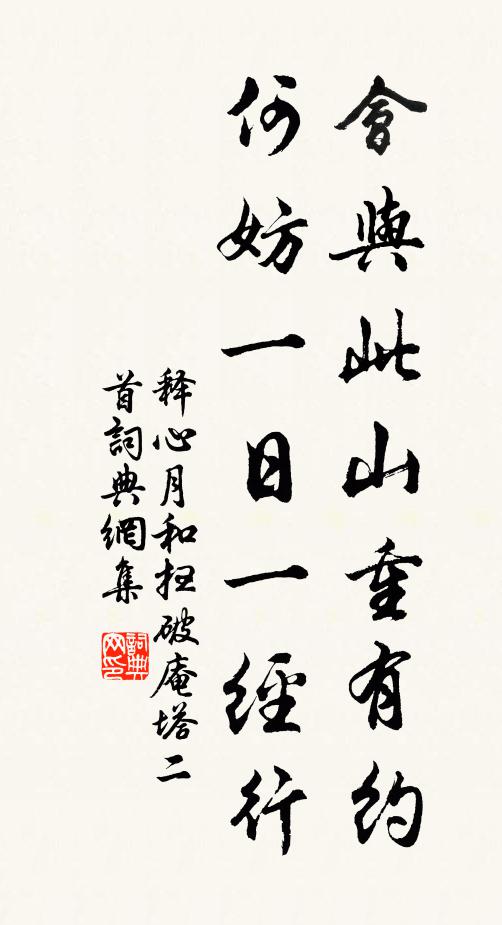 會與此山重有約
何妨一日一經行
释心月和扫破庵塔二
首詞典網集
詞典网印